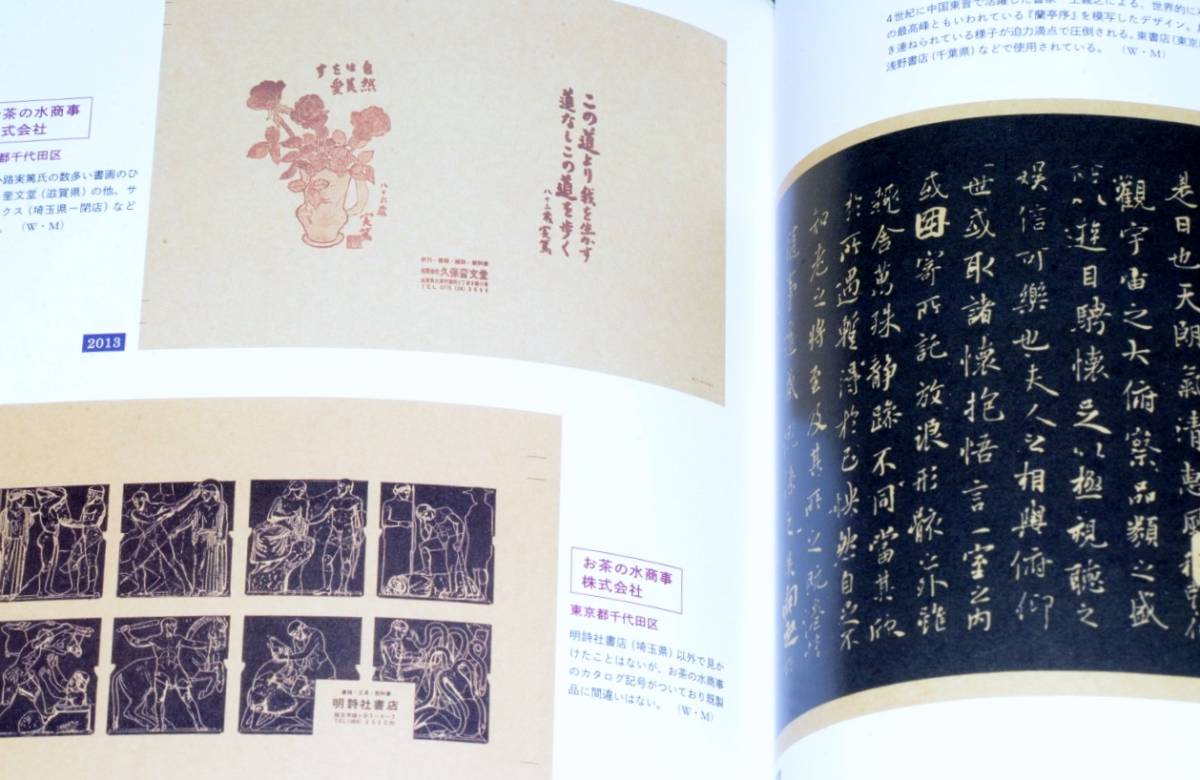 茶の水商事
式会社
都千代田区
路実篤氏の数多い書画のひ
奎文堂（滋賀県）の他、サ
クス（埼玉県－閉店）など
。 （W・M）
2013
自然
は美
を愛
す
実篤
この道より我を生かす
道なしこの道を歩く
実篤
文堂
お茶の水商事
株式会社
東京都千代田区
明詩社書店（埼玉県）以外で見か
けたことはないが、お茶の水商事
のカタログ記号がついており既製
品に間違いはない。 （W・M）
明詩社書店
4世紀に中国東晋で活躍した書家
の最高峰ともいわれている『蘭亭序』を模写したデザイン。
き連ねられている様子が迫力満点で圧倒される。東書店（東京
浅野書店（千葉県）などで使用されている。 （W・M）
是日也天朗氣清惠風
觀宇宙之大俯察品類之盛
所以遊目騁懷足以極視聽之
娛信可樂也夫人之相與俯仰
世或取諸懷抱悟言一室之内
或因寄所託放浪形骸之外雖
趣舍萬殊静躁不同當其欣
於所遇暫得於己怏然自足不
知老之將至及其所之